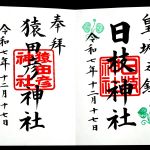 皇城之鎮
日枝神社
令和七年十二月十七日
奉拝
猿田彦神社
令和七年十二月十七日